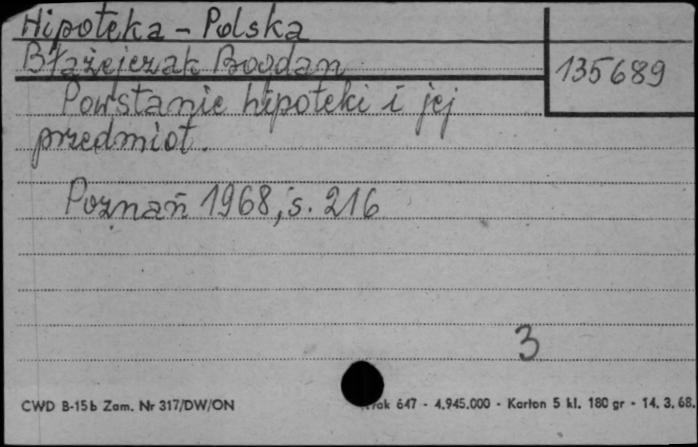 Hipoteka - Polska
Błażejczak Bogdan
135689
Powstanie hipoteki i jej
przedmiot.
Poznań 1968, s. 216
3
CWD B-15b Zam. Nr 317/DW/ON
647 - 4.945.000 - Karton 5 kl. 180 gr - 14. 3. 68.